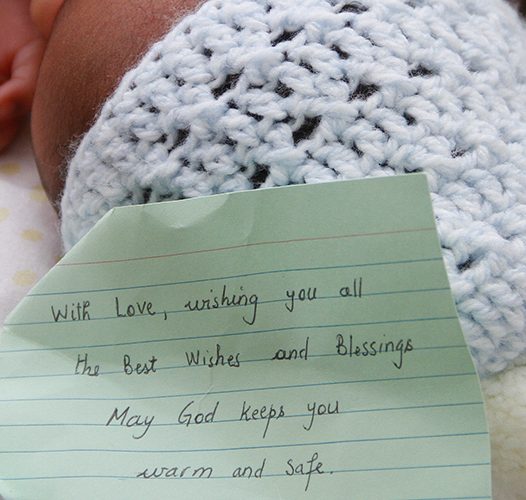 With Love, wishing you all
the Best Wishes and Blessings
May God keeps you
warm and safe.